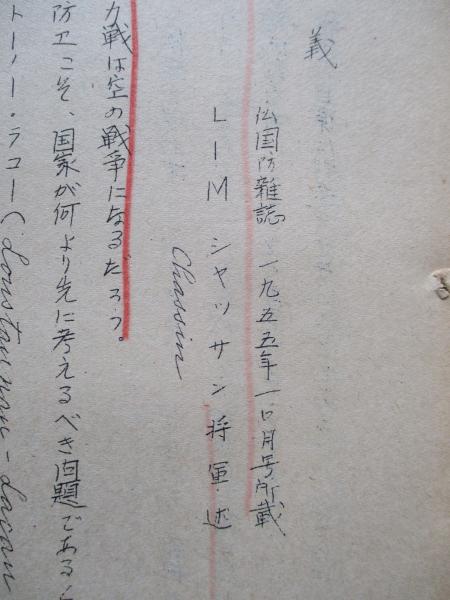 義
仏国防雑誌 一九五五年一〇月号所載
LIM シャッサン将軍述
Chassin
力戦は空の戦争になるだろう。
防卫こそ、国家が何より先に考えるべき问題である
トーノー・ラコー(Loustaunau-Lacau